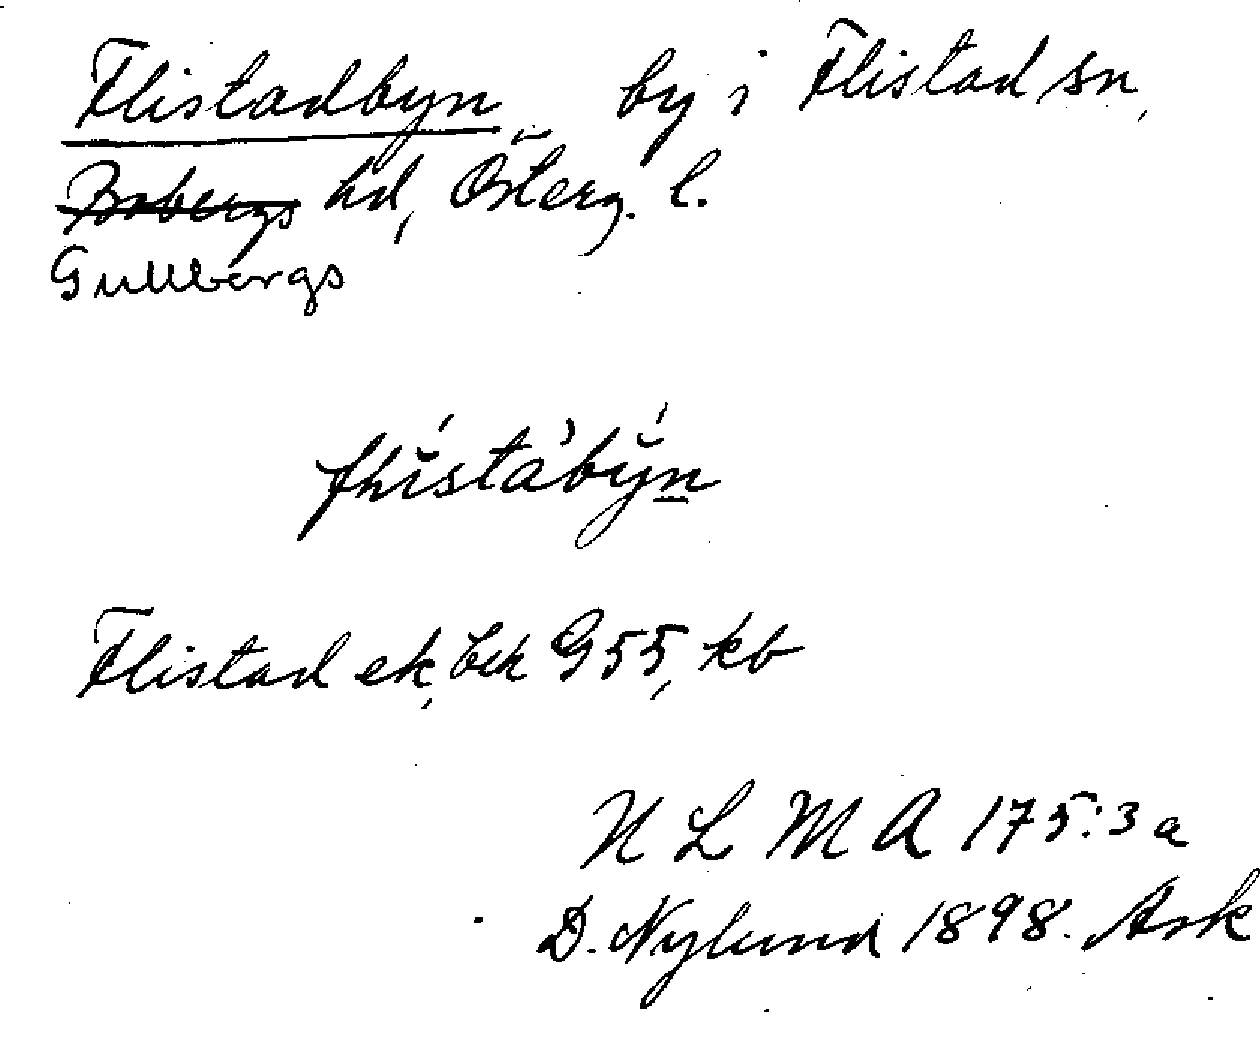 Flistadbyn by i Flistad sn,
Bobergs hd, Österg. l.
Gullbergs
Flistad ek, bek G 55, kb
ULMA 175:3a
D. Nylund 1898. Ask